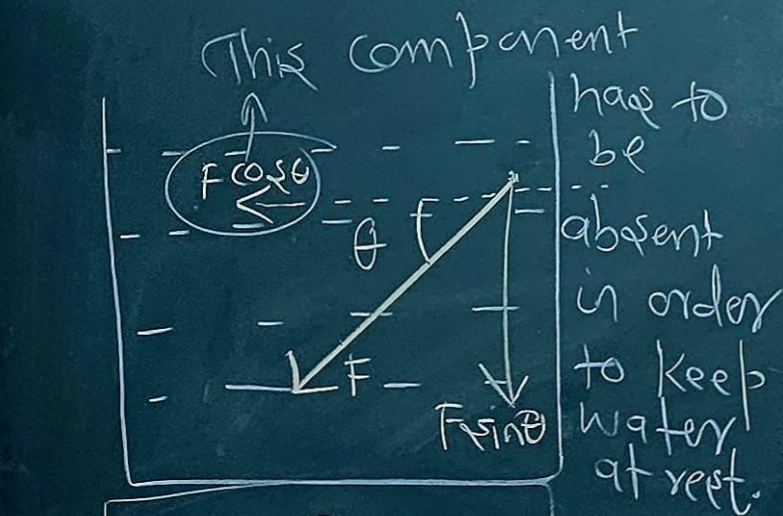 This component
has to
be
absent
in order
to keep
water
at rest.
Fcosθ
θ
F
Fsinθ